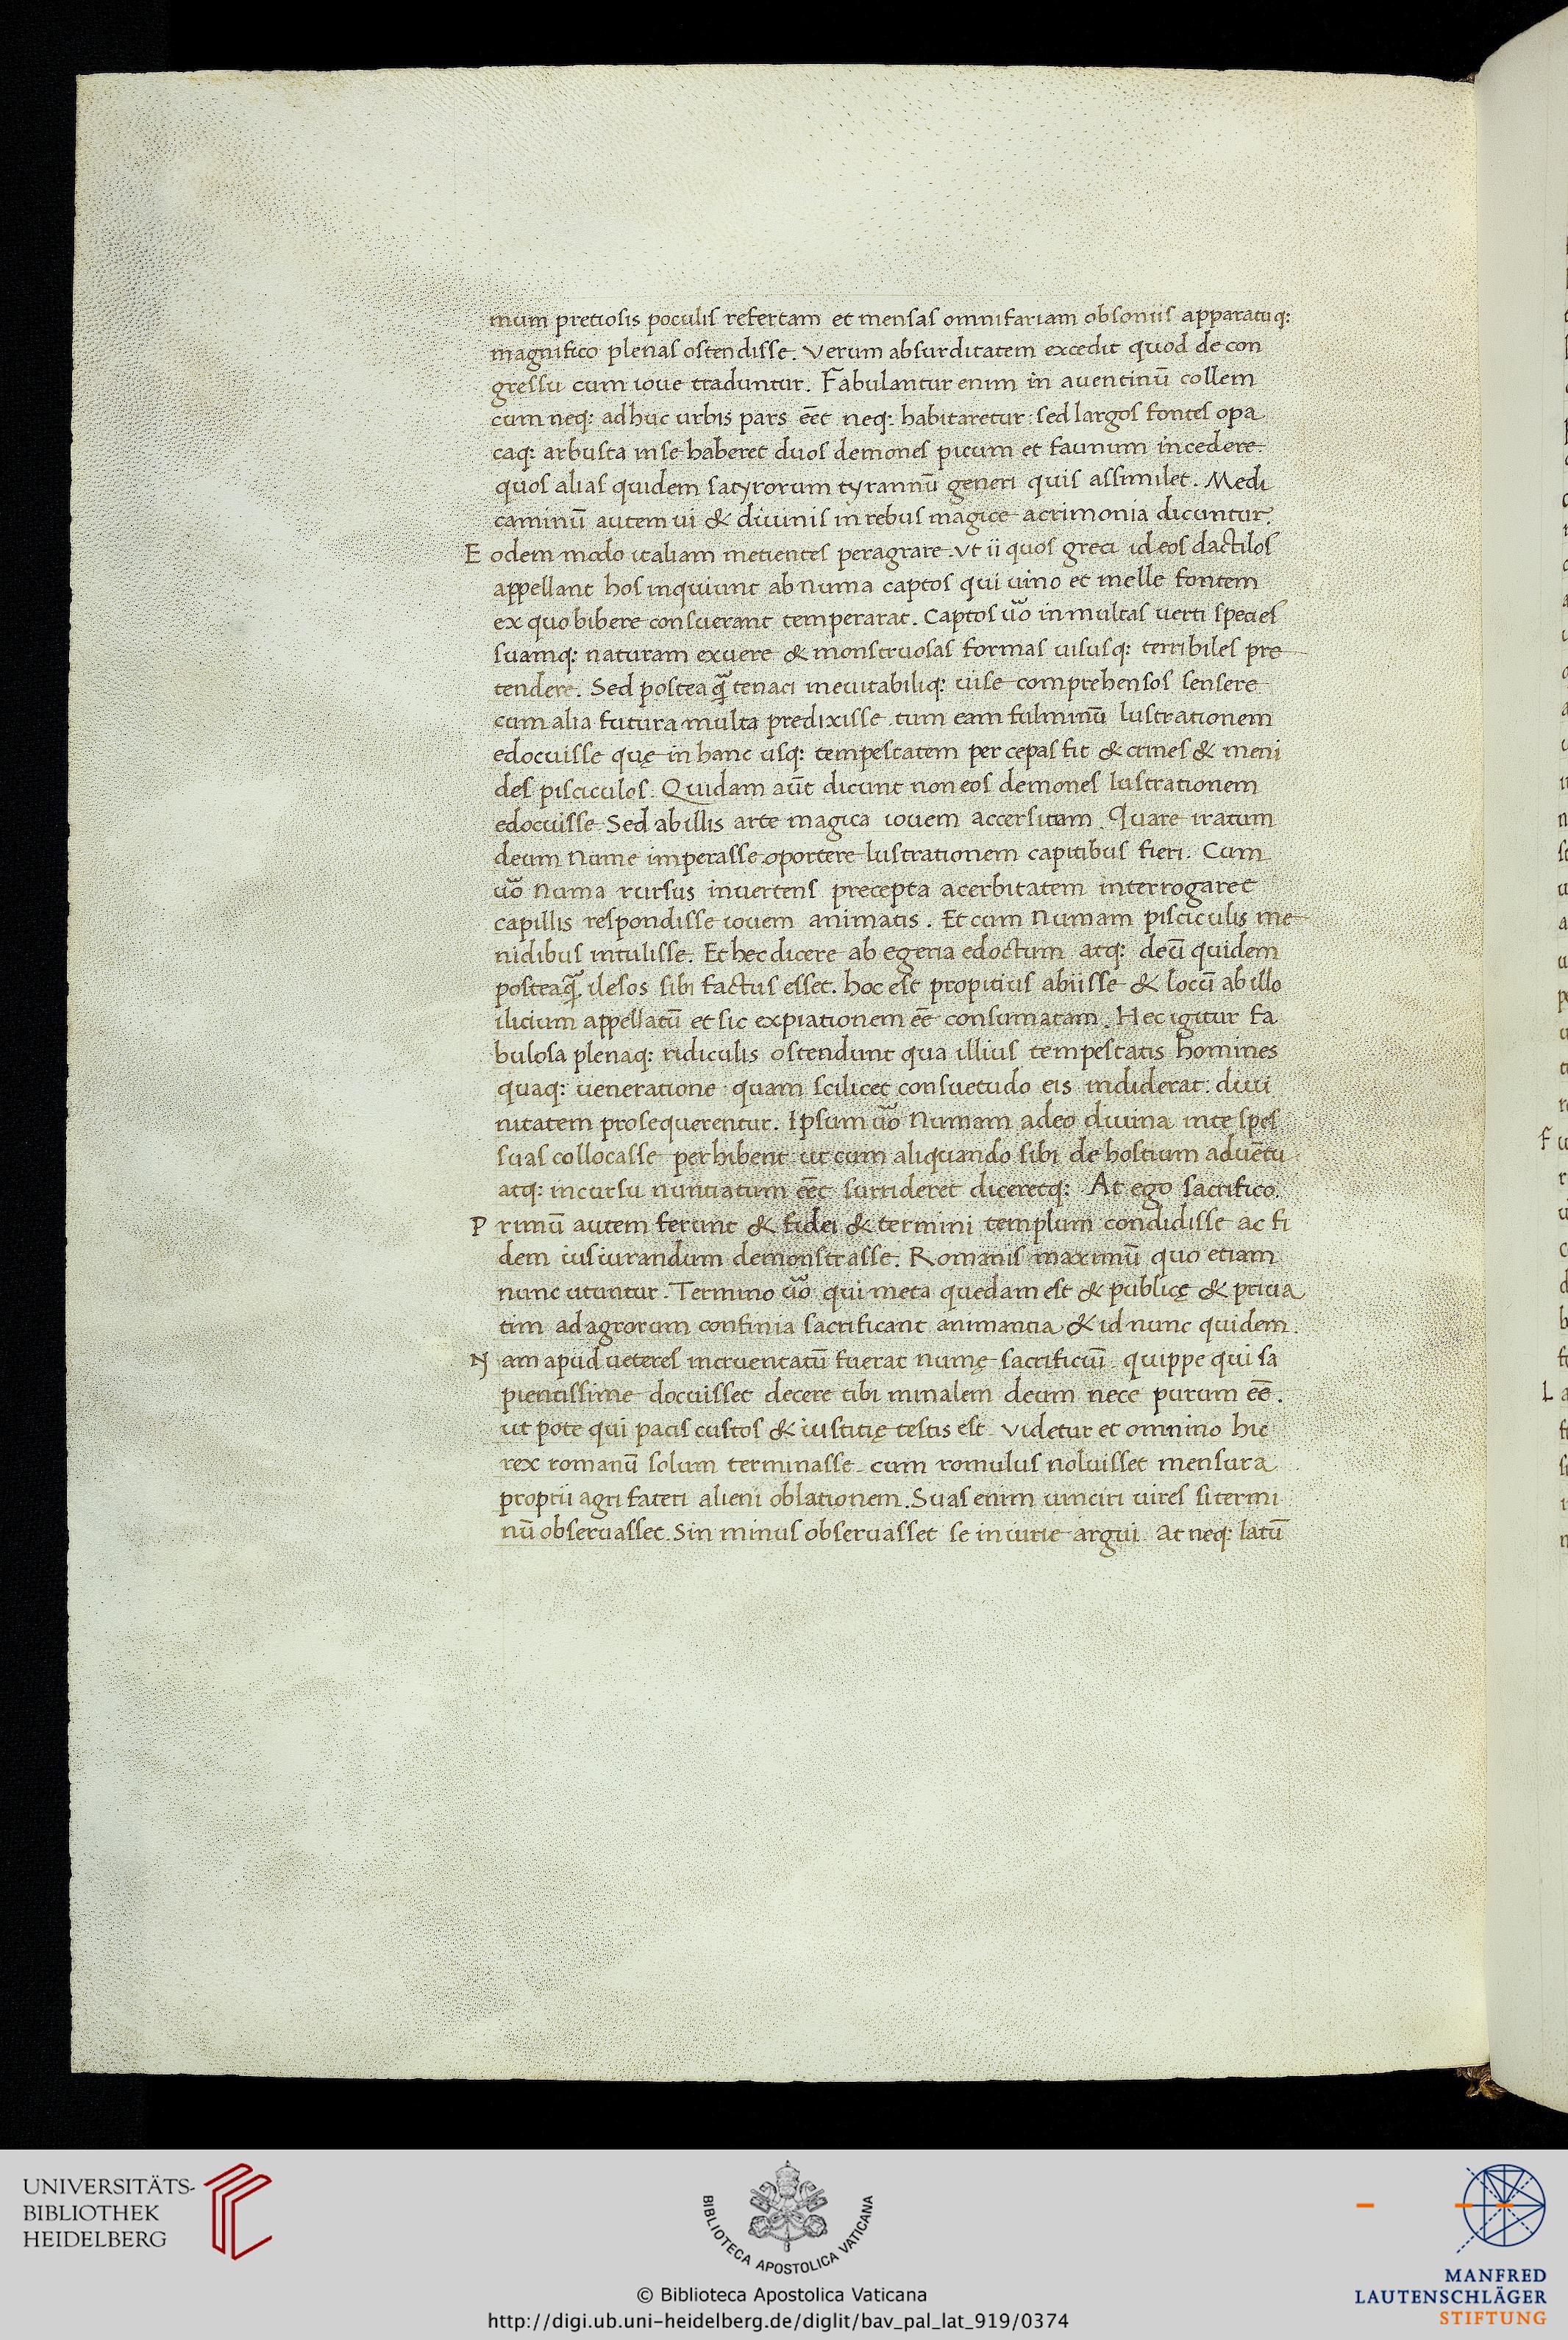 mum pretiosis poculis refertam et mensas omnifariam obsoniis apparatuq:
magnifico plenas ostendisse. Verum absurditatem excedit quod de con
gressu cum ioue traduntur. Fabulantur enim in auentinū collem
cum neq: adhuc urbis pars eēt neq: habitaretur: sed largos fontes opa
caq: arbusta in se haberet duos demones picum et faunum incedere.
quos alias quidem satyrorum tyrannū generi quis assimilet. Medi
caminū autem ui & diuinis in rebus magice acrimonia dicuntur.
E odem modo italiam metientes peragrare. Vt ii quos greci ideos dactilos
appellant hos inquiunt ab Numa captos qui uino et melle fontem
ex quo bibere consuerant temperarat. Captos uō in multas uerti species
suamq: naturam exuere & monstruosas formas uisusq: terribiles pre
tendere. Sed postea q̄ tenaci ineuitabiliq: uise comprehensos sensere
cum alia futura multa predixisse. tum eam fulminū lustrationem
edocuisse quę in hanc usq: tempestatem per cepas fit & crines & meni
des pisciculos. Quidam aūt dicunt non eos demones lustrationem
edocuisse Sed ab illis arte magica iouem accersitum. Quare iratum
deum Nume imperasse oportere lustrationem capitibus fieri. Cum
uō Numa rursus inuertens precepta acerbitatem interrogaret
capillis respondisse iouem animatis. Et cum Numam pisciculis me
nidibus intulisse. Et hec dicere ab egeria edoctum atq: deū quidem
posteaq̄ ilesos sibi factus esset. hoc est propitius abiisse & locū ab illo
ilicium appellatū et sic expiationem eē consumatam. Hec igitur fa
bulosa plenaq: ridiculis ostendunt qua illius tempestatis homines
quaq: ueneratione quam scilicet consuetudo eis indiderat: diui
nitatem prosequerentur. Ipsum uō Numam adeo diuina in te spes
suas collocasse perhibent ut cum aliquando sibi de hostium aduētu
atq: incursu nuntiatum eēt surrideret diceretq: At ego sacrifico.
P rimū autem ferunt & fidei & termini templum condidisse ac fi
dem iusiurandum demonstrasse. Romanis maximū quo etiam
nunc utuntur. Termino uō qui meta quedam est & publicę & priua
tim ad agrorum confinia sacrificant animantia & id nunc quidem.
N am apud ueteres incruentatū fuerat numę sacrificiū quippe qui sa
pientissime docuisset decere tibi minalem deum nece purum eē.
ut pote qui pacis custos & iustitię testis est. Videtur et omnino hic
rex romanū solum terminasse. cum romulus noluisset mensura
proprii agri fateri alieni oblationem. Suas enim uinciri uires si termi
nū obseruasset. Sin minus obseruasset se iniurie argui. At neq: latū
UNIVERSITÄTS-
BIBLIOTHEK
HEIDELBERG
BIBLIOTECA APOSTOLICA VATICANA
© Biblioteca Apostolica Vaticana
http://digi.ub.uni-heidelberg.de/diglit/bav_pal_lat_919/0374
MANFRED
LAUTENSCHLÄGER
STIFTUNG